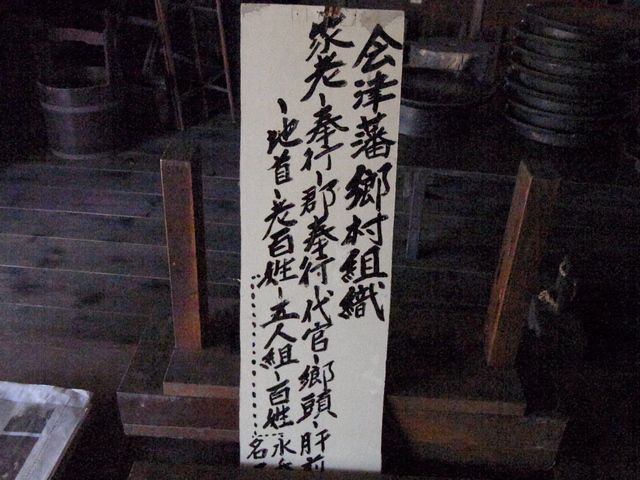 会津藩郷村組織
家老-奉行-郡奉行代官-郷頭-肝煎
-地首-老百姓-五人組-百姓